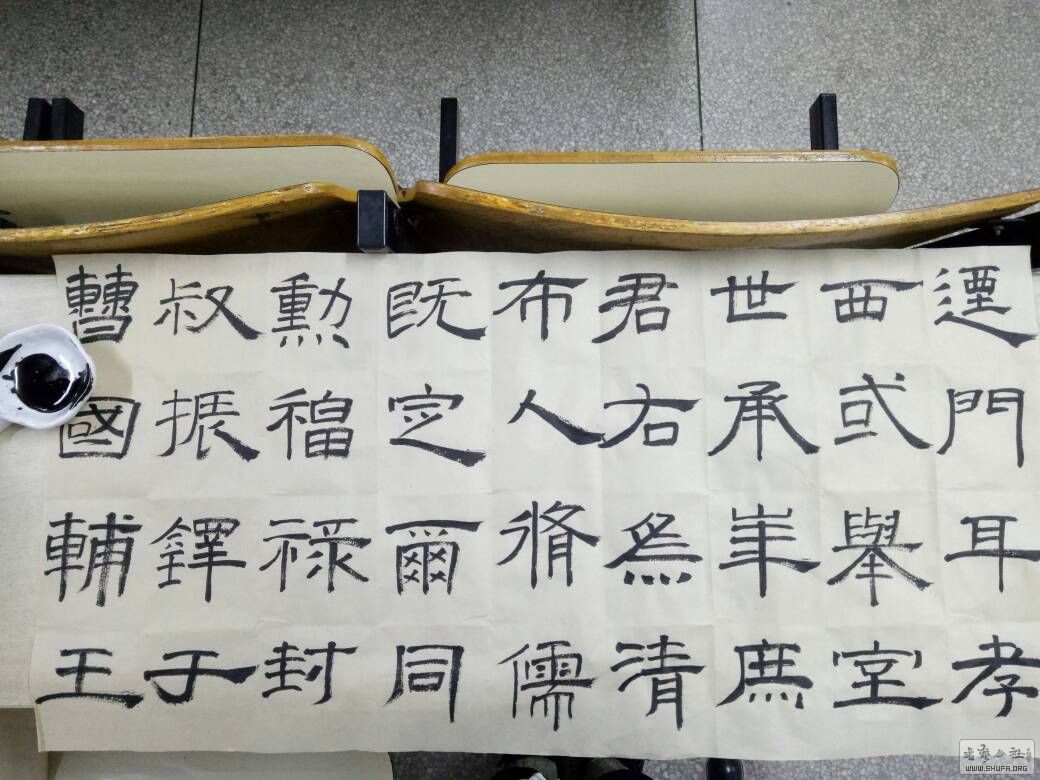 門耳孝
西或舉室
世承庶
君右為清
布人脩儒
既定爾同
勳福祿封
叔振鐸于
曹國輔王
書藝公社
WWW.SHUFA.ORG